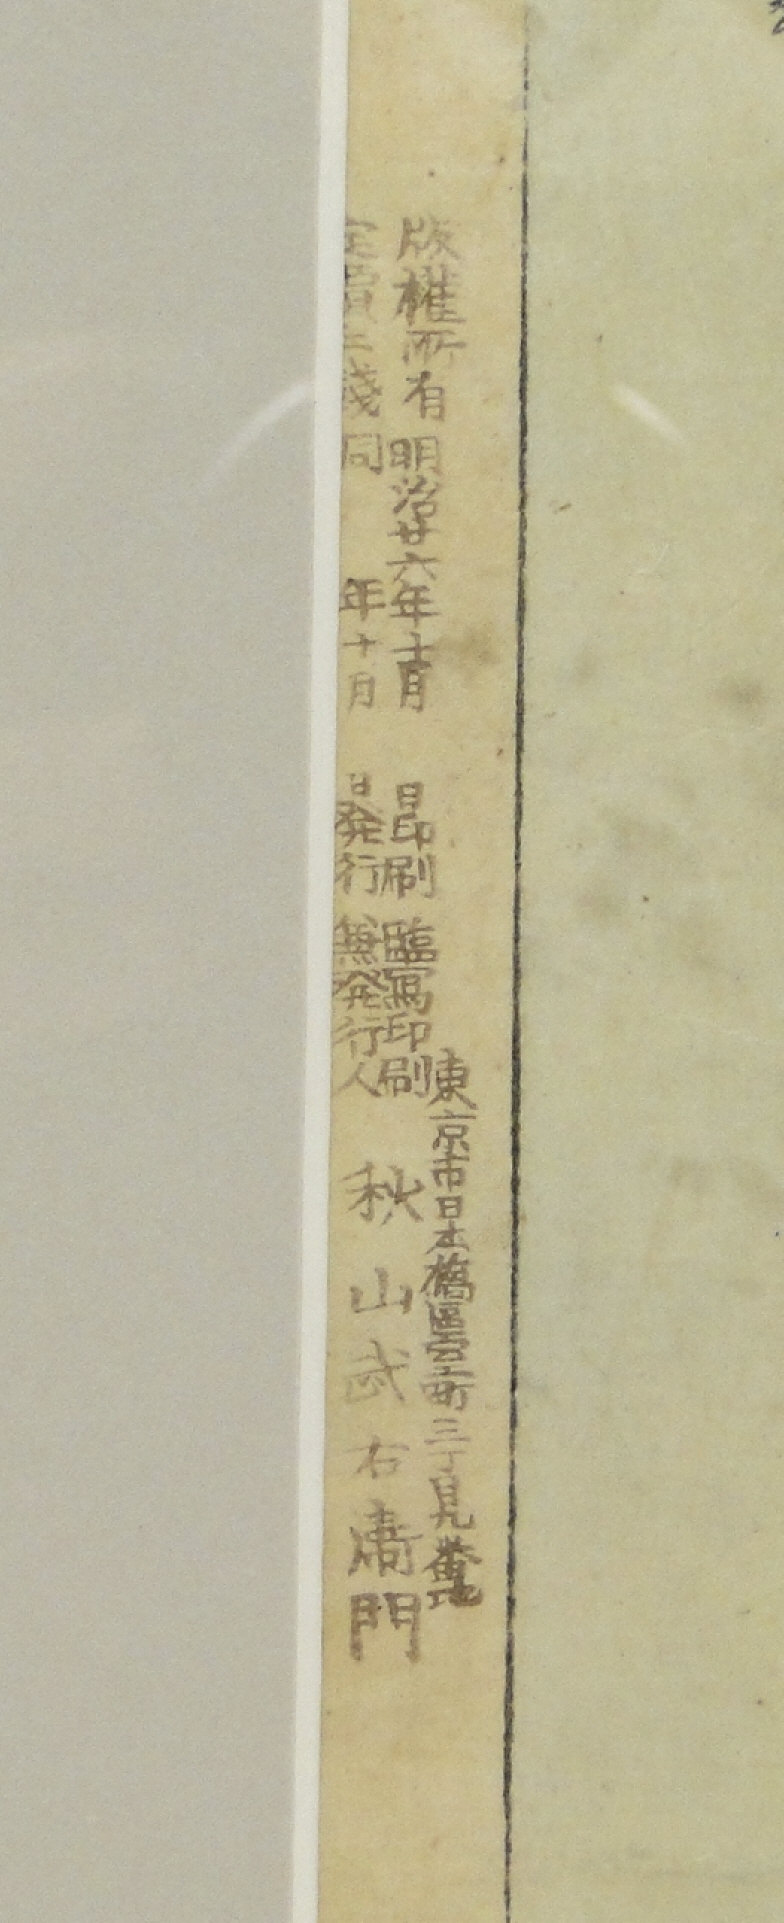 版權所有 明治廿六年十一月 日印刷 臨寫印刷
東京市日本橋區室町三丁目九番地
定價三錢 同 年十月 日発行 兼発行人
秋山武右衞門